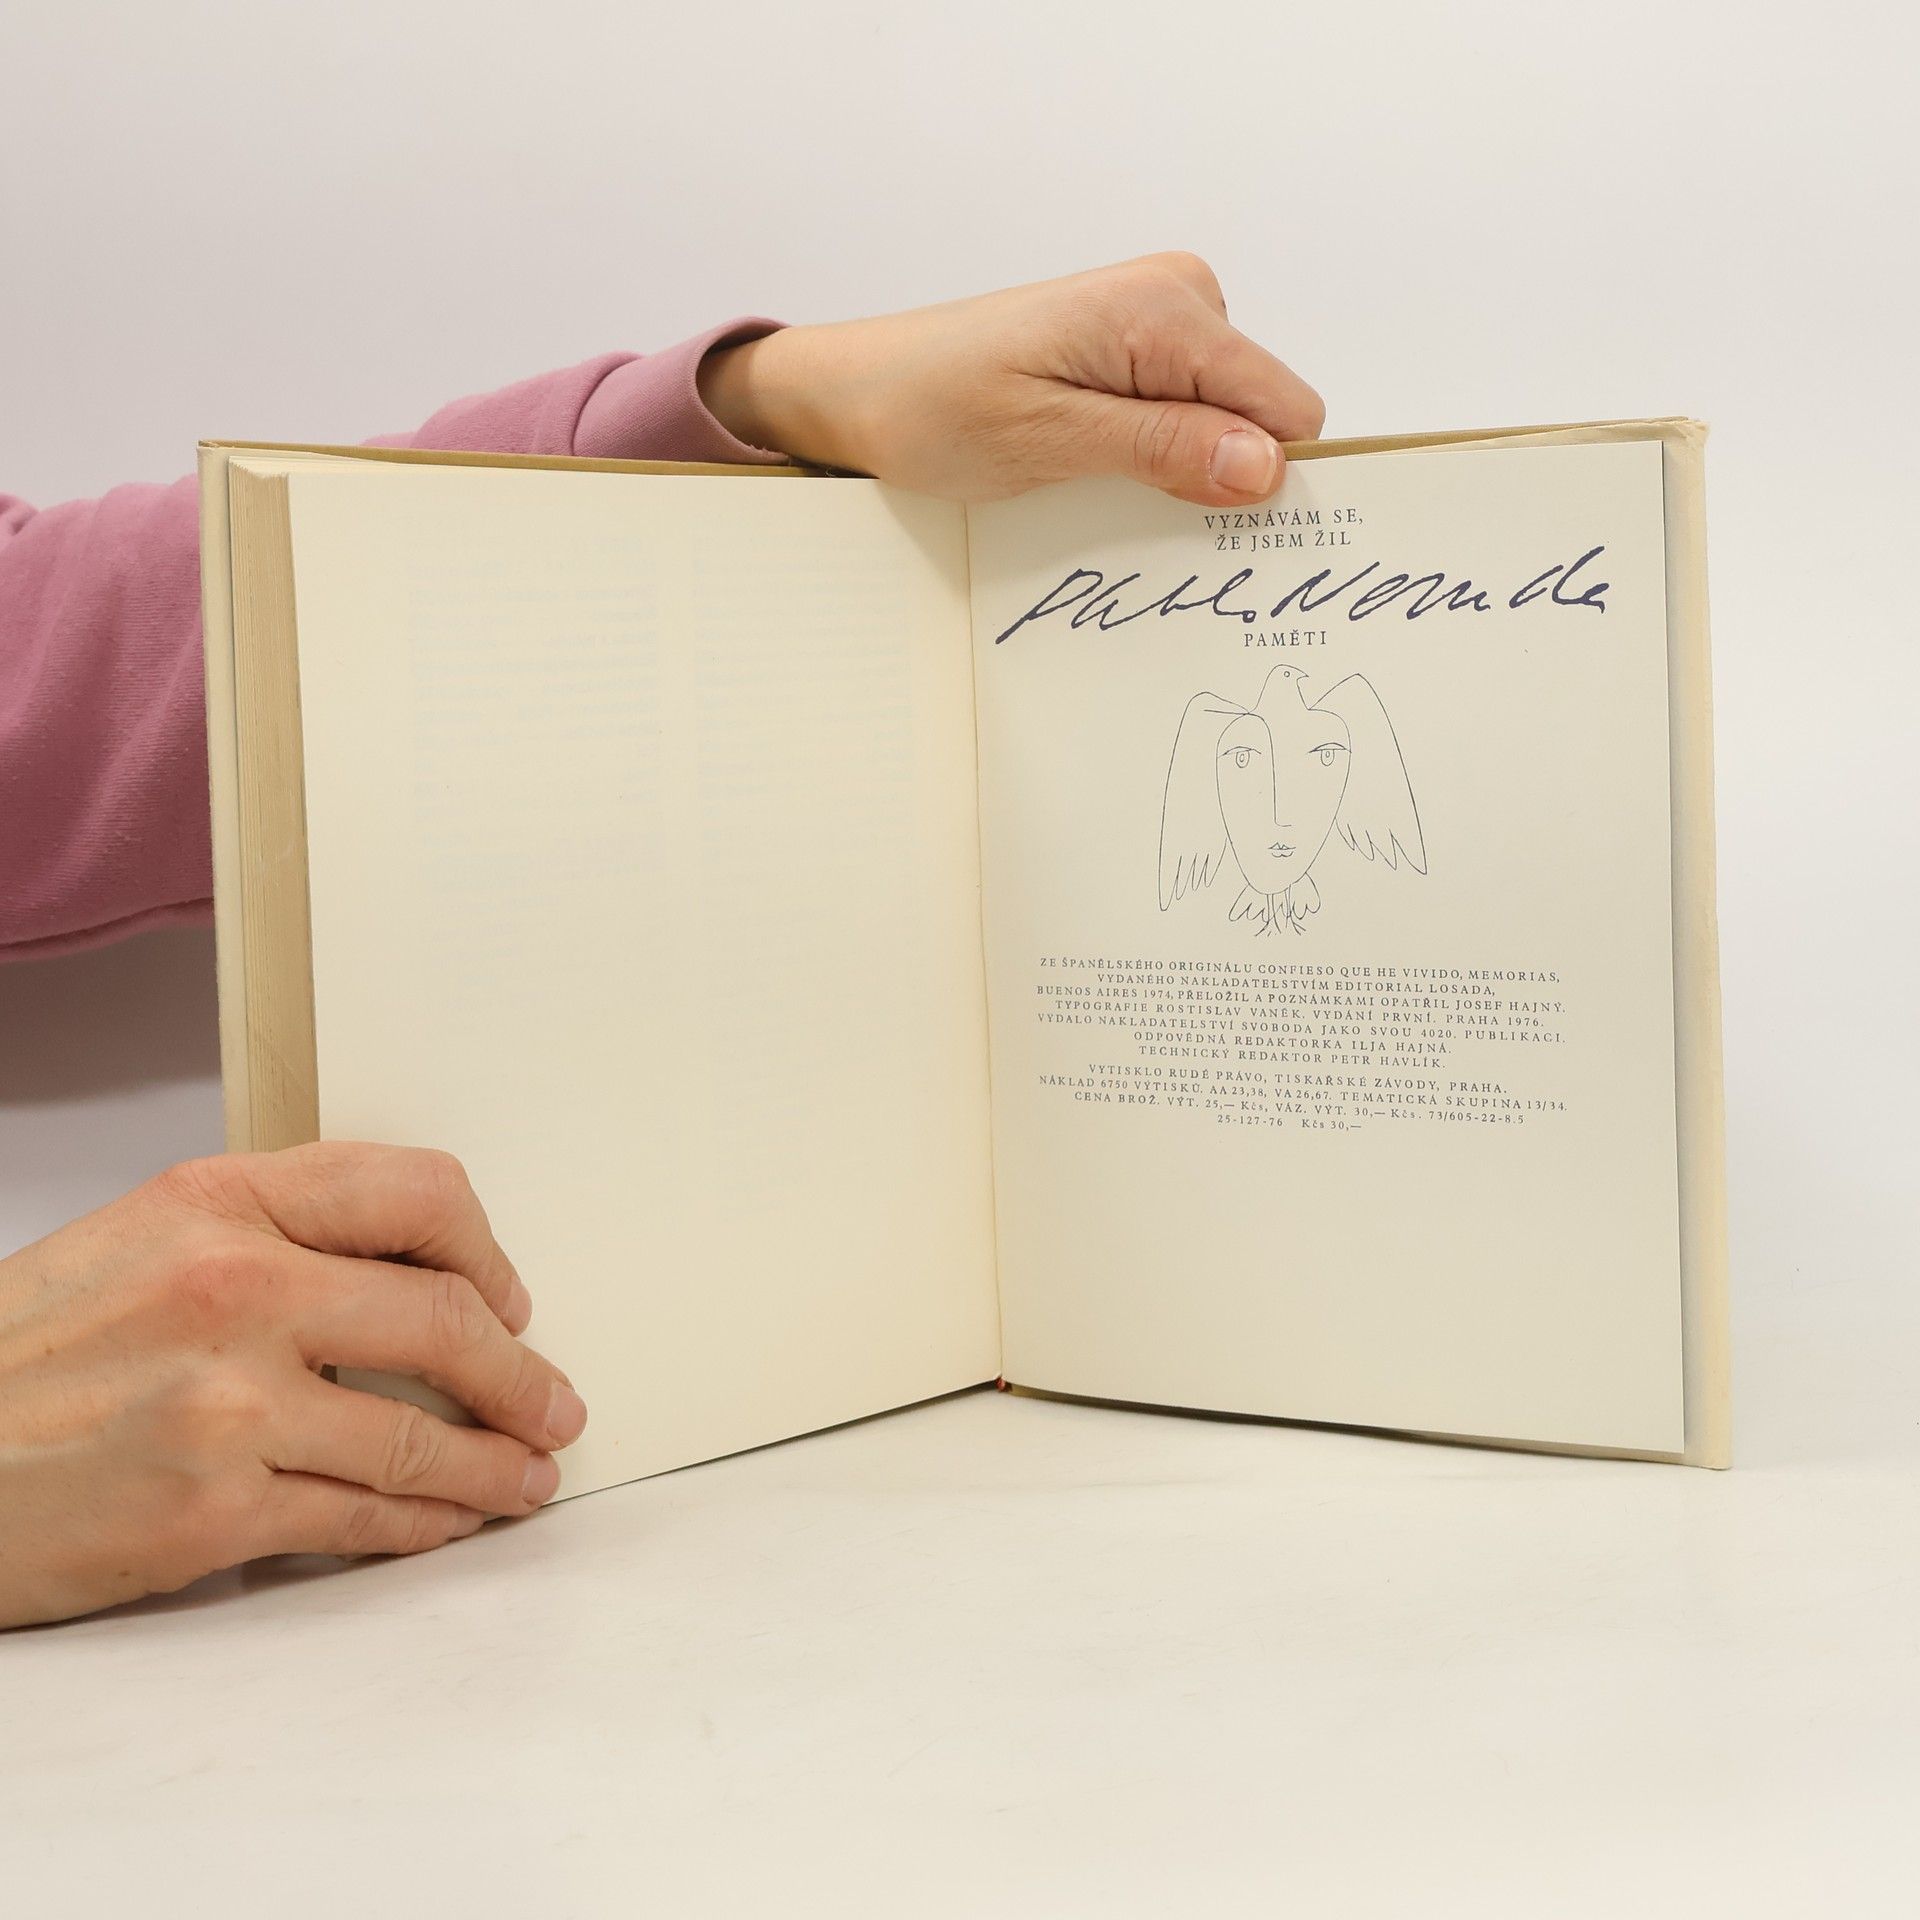 VYZNÁVÁM SE,
ŽE JSEM ŽIL
Pablo Neruda
PAMĚTI
ZE ŠPANĚLSKÉHO ORIGINÁLU CONFIESO QUE HE VIVIDO, MEMORIAS,
VYDANÉHO NAKLADATELSTVÍM EDITORIAL LOSADA,
BUENOS AIRES 1974, PŘELOŽIL A POZNÁMKAMI OPATŘIL JOSEF HAJNÝ.
TYPOGRAFIE ROSTISLAV VANĚK. VYDÁNÍ PRVNÍ. PRAHA 1976.
VYDALO NAKLADATELSTVÍ SVOBODA JAKO SVOU 4020. PUBLIKACI.
ODPOVĚDNÁ REDAKTORKA ILJA HAJNÁ.
TECHNICKÝ REDAKTOR PETR HAVLÍK.
VYTISKLO RUDÉ PRÁVO, TISKAŘSKÉ ZÁVODY, PRAHA.
NÁKLAD 6750 VÝTISKŮ. AA 23,38, VA 26,67. TEMATICKÁ SKUPINA 13/34.
CENA BROŽ. VÝT. 25,— Kčs, VÁZ. VÝT. 30,— Kčs. 73/605-22-8.5
25-127-76 Kčs 30,—